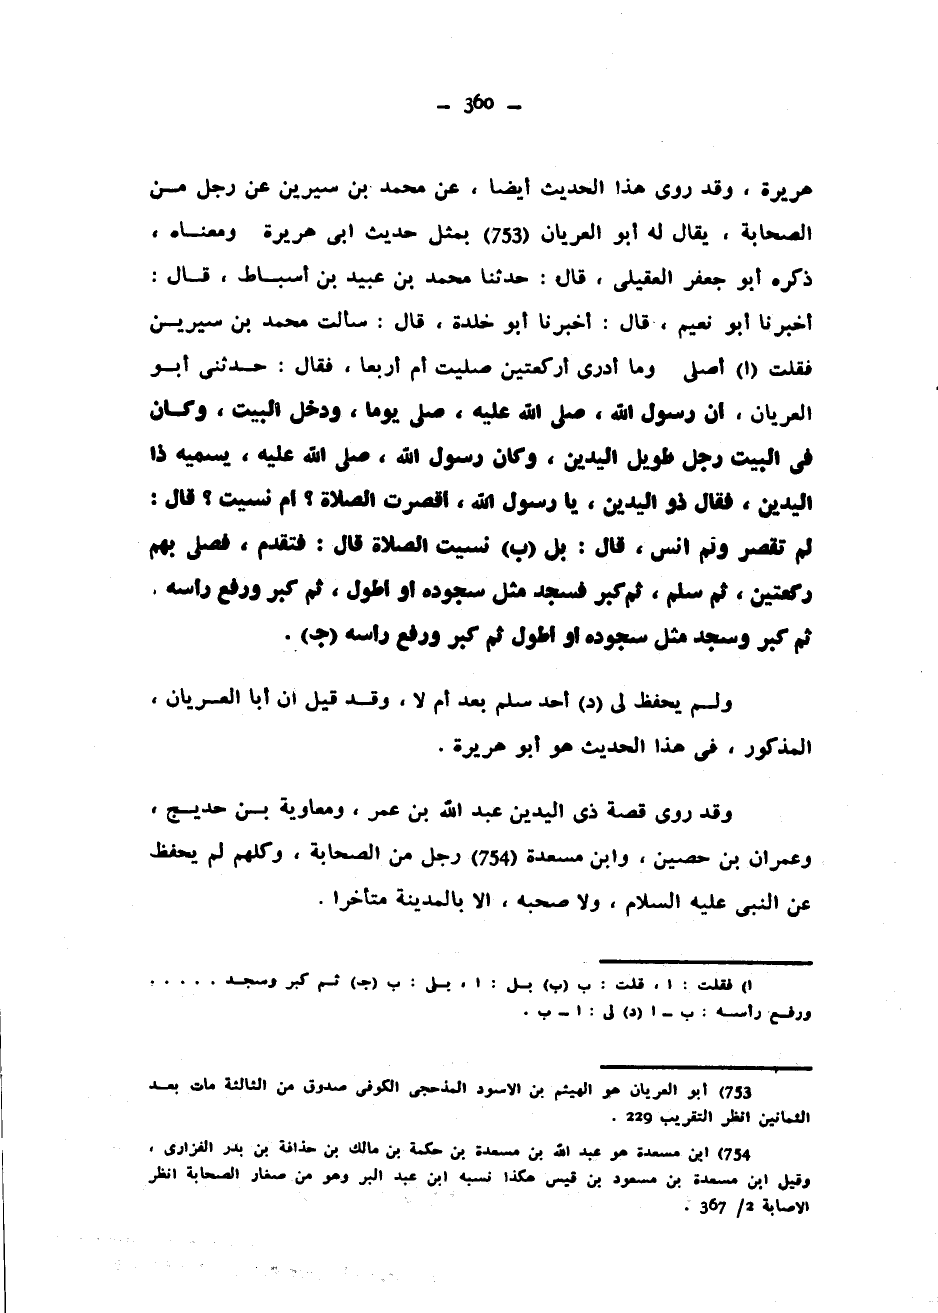 – 360 –
هريرة ، وقد روى هذا الحديث أيضا ، عن محمد بن سيرين عن رجل مـن
الصحابة ، يقال له أبو العريان (753) بمثل حديث ابى هريرة ومعنـاه ،
ذكره أبو جعفر العقيلى ، قال : حدثنا محمد بن عبيد بن أسبـاط ، قـال :
أخبرنا أبو نعيم ، قال : أخبرنا أبو خلدة ، قال : سألت محمد بن سيريـن
فقلت (ا) أصلى وما أدرى أركعتين صليت أم أربعا ، فقال : حـدثنى أبـو
العريان ، أن رسول الله ، صلى الله عليه ، صلى يوما ، ودخل البيت ، وكـان
فى البيت رجل طويل اليدين ، وكان رسول الله ، صلى الله عليه ، يسميه ذا
اليدين ، فقال ذو اليدين ، يا رسول الله ، أقصرت الصلاة ؟ أم نسيت ؟ قال :
لم تقصر ولم انس ، قال : بل (ب) نسيت الصلاة قال : فتقدم ، فصلى بهم
ركعتين ، ثم سلم ، ثم كبر فسجد مثل سجوده او اطول ، ثم كبر ورفع رأسه .
ثم كبر وسجد مثل سجوده او اطول ثم كبر ورفع رأسه (جـ) .
ولـم يحفظ لى (د) أحد سلم بعد أم لا ، وقـد قيل ان أبا العـريان ،
المذكور ، فى هذا الحديث هو أبو هريرة .
وقد روى قصة ذى اليدين عبد الله بن عمر ، ومعاوية بـن حديـج ،
وعمران بن حصين ، وابن مسعدة (754) رجل من الصحابة ، وكلهم لم يحفظ
عن النبى عليه السلام ، ولا صحبه ، الا بالمدينة متأخرا .
ا) فقلت : ا ، قلت : ب (ب) بـل : ا ، بـلى : ب (جـ) ثـم كبر وسجـد . . . . .
ورفـع رأسـه : ب ـ ا (د) لى : ا ـ ب .
753) أبو العريان هو الهيثم بن الاسود المذحجى الكوفى صدوق من الثالثة مات بعـد
الثمانين انظر التقريب 229 .
754) ابن مسعدة هو عبد الله بن مسعدة بن حكمة بن مالك بن حذافة بن بدر الفزارى ،
وقيل ابن مسعدة بن مسعود بن قيس هكذا نسبه ابن عبد البر وهو من صغار الصحابة انظر
الاصابة 2/ 367 .